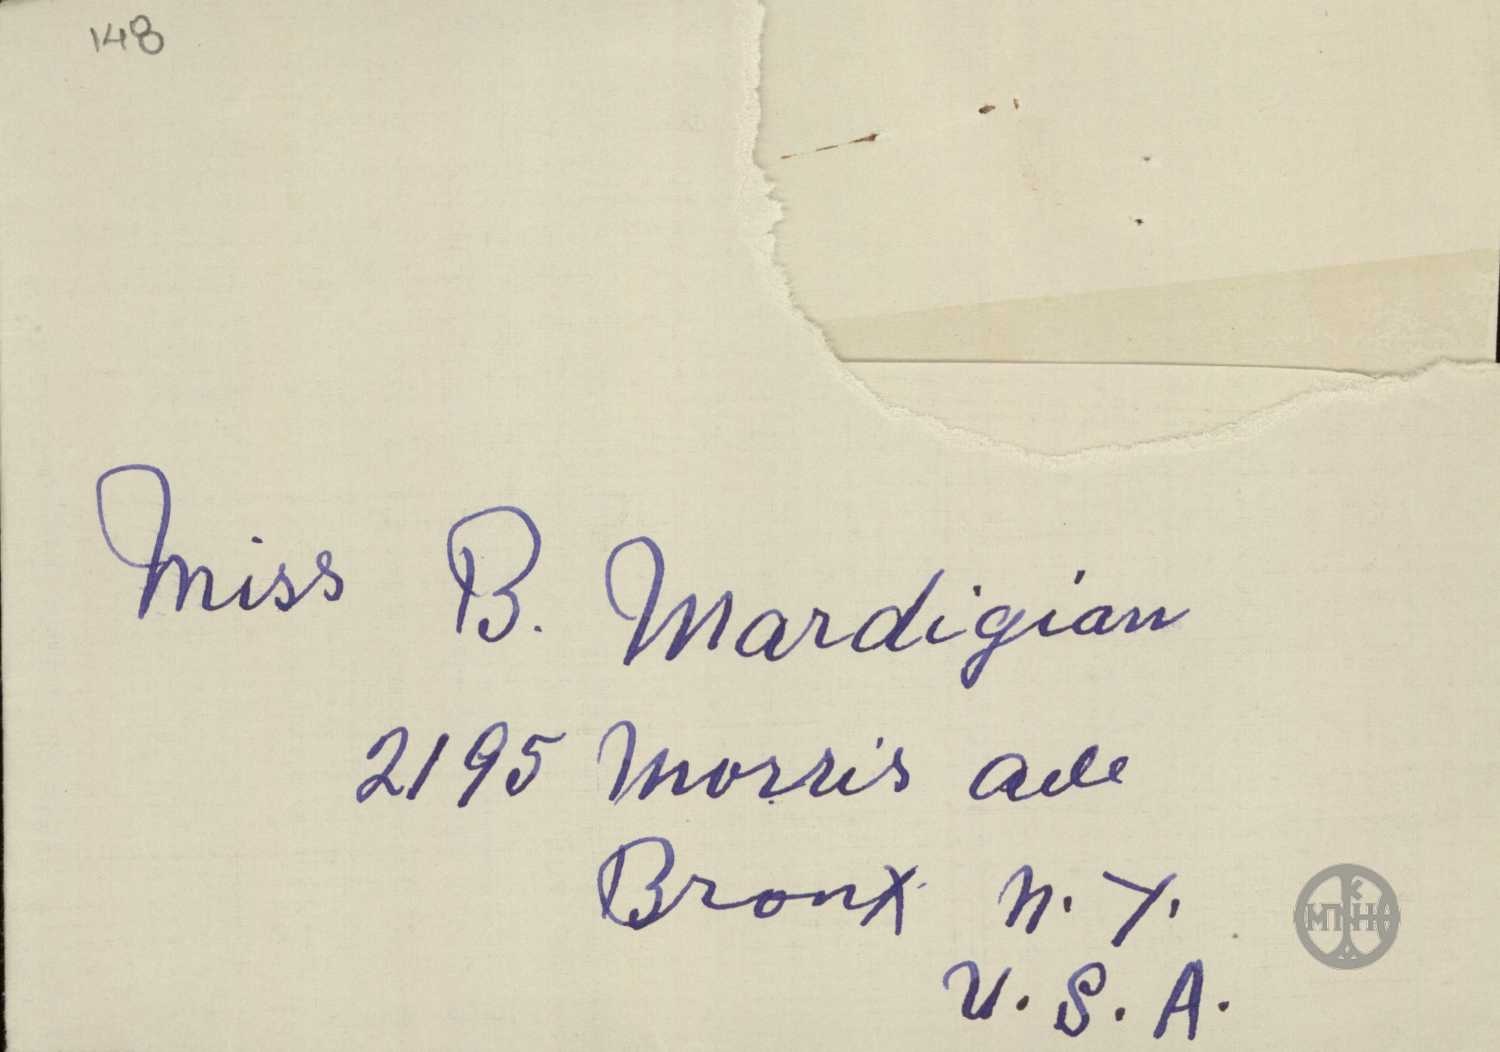 148
Miss B. Mardigian
2195 Morris ave
Bronx N. Y.
U. S. A.